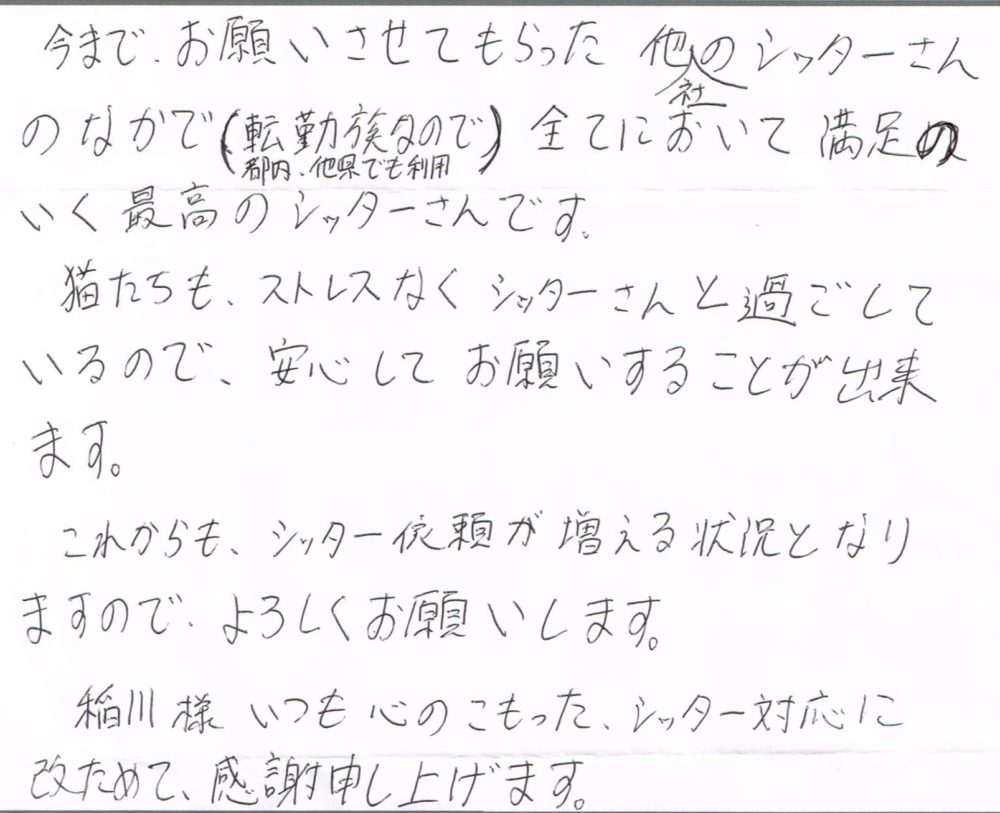 今まで、お願いさせてもらった 他社のシッターさん
のなかで(転勤族なので)全てにおいて 満足の
都内、他県でも利用
いく最高のシッターさんです。
猫たちも、ストレスなく シッターさんと過ごして
いるので、安心して お願いすることが出来
ます。
これからも、シッター依頼が増える状況となり
ますので、よろしくお願いします。
稲川様 いつも心のこもった、シッター対応に
改ためて、感謝申し上げます。